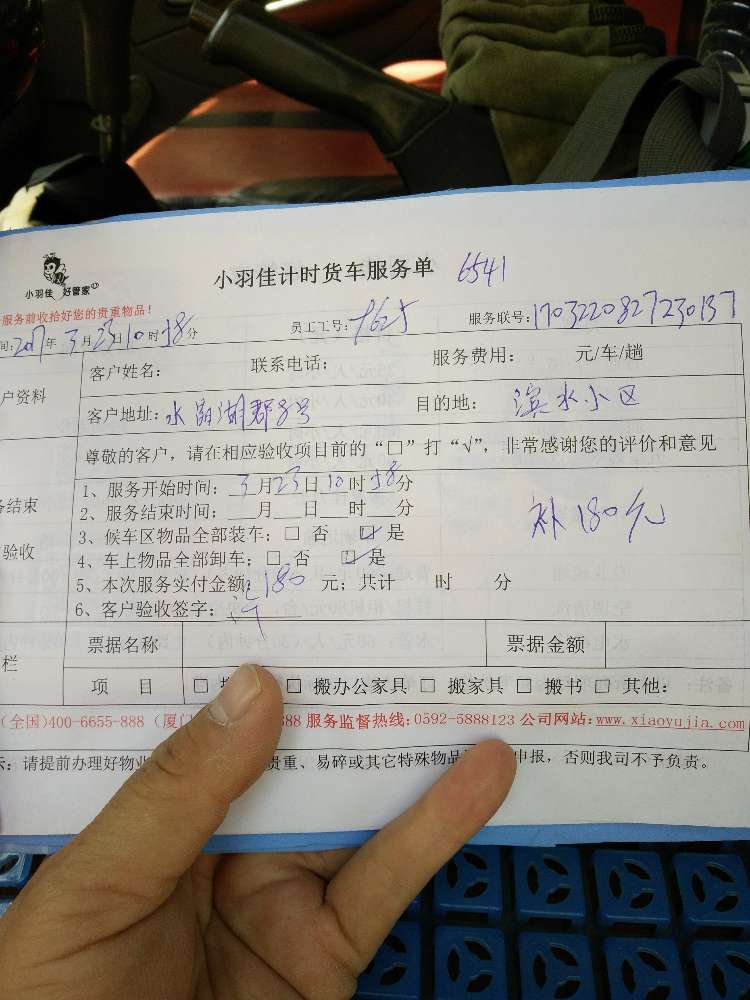 小羽佳计时货车服务单 6541
小羽佳 好管家
服务前收拾好您的贵重物品!
间:2017年3月23日10时58分 员工工号: 服务联号:1703220827230137
户资料
客户姓名: 联系电话: 服务费用: 元/车/趟
客户地址:水晶湖郡8号 目的地: 滨水小区
尊敬的客户,请在相应验收项目前的“□”打“√”,非常感谢您的评价和意见
务结束
验收
1、服务开始时间: 3月23日10时58分
2、服务结束时间: 月 日 时 分
3、候车区物品全部装车: □ 否 ☑ 是
4、车上物品全部卸车: □ 否 ☑ 是
补180元
5、本次服务实付金额: 180 元; 共计 时 分
6、客户验收签字:
栏
票据名称 票据金额
项 目 □ □ 搬办公家具 □ 搬家具 □ 搬书 □ 其他:
(全国)400-6655-888 (厦门 888 服务监督热线:0592-5888123 公司网站:www.xiaoyujia.com
示: 请提前办理好物业 贵重、易碎或其它特殊物品 申报, 否则我司不予负责。